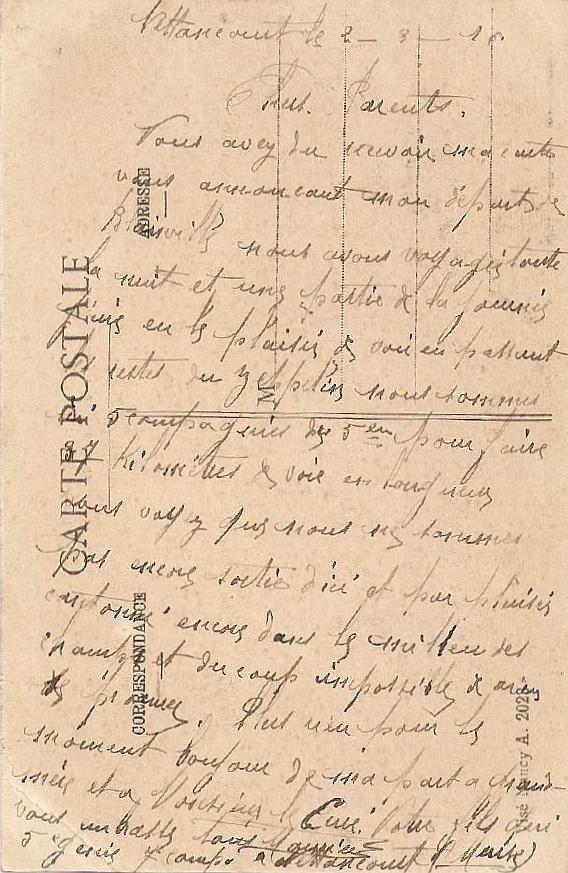 Nettancourt le 2 - 3 - 16
Chers Parents.
Vous avez du recevoir ma carte
vous annoncant mon départ de
Blainville nous avons voyagés toute
la nuit et une partie de la journée
eus en le plaisir de voir en passant
restes du Zeppelin nous sommes
5 compagnies du 5em pour faire
37 Kilomètres de voie en longueur
vous voyez que nous ne sommes
pas encore sortis d'ici et par plaisir
cantonné encore dans le milieu des
champs et du coup impossible d'avoir
des pinard. Plus rien pour le
moment bonjour de ma part a grand-
mère et a Monsieur le Curé Votre fils qui
vous embrasse tous
5e genie 7e compa a Nettancourt (Meuse)
CARTE POSTALE
CORRESPONDANCE
ADRESSE
M
Nancy A. 202